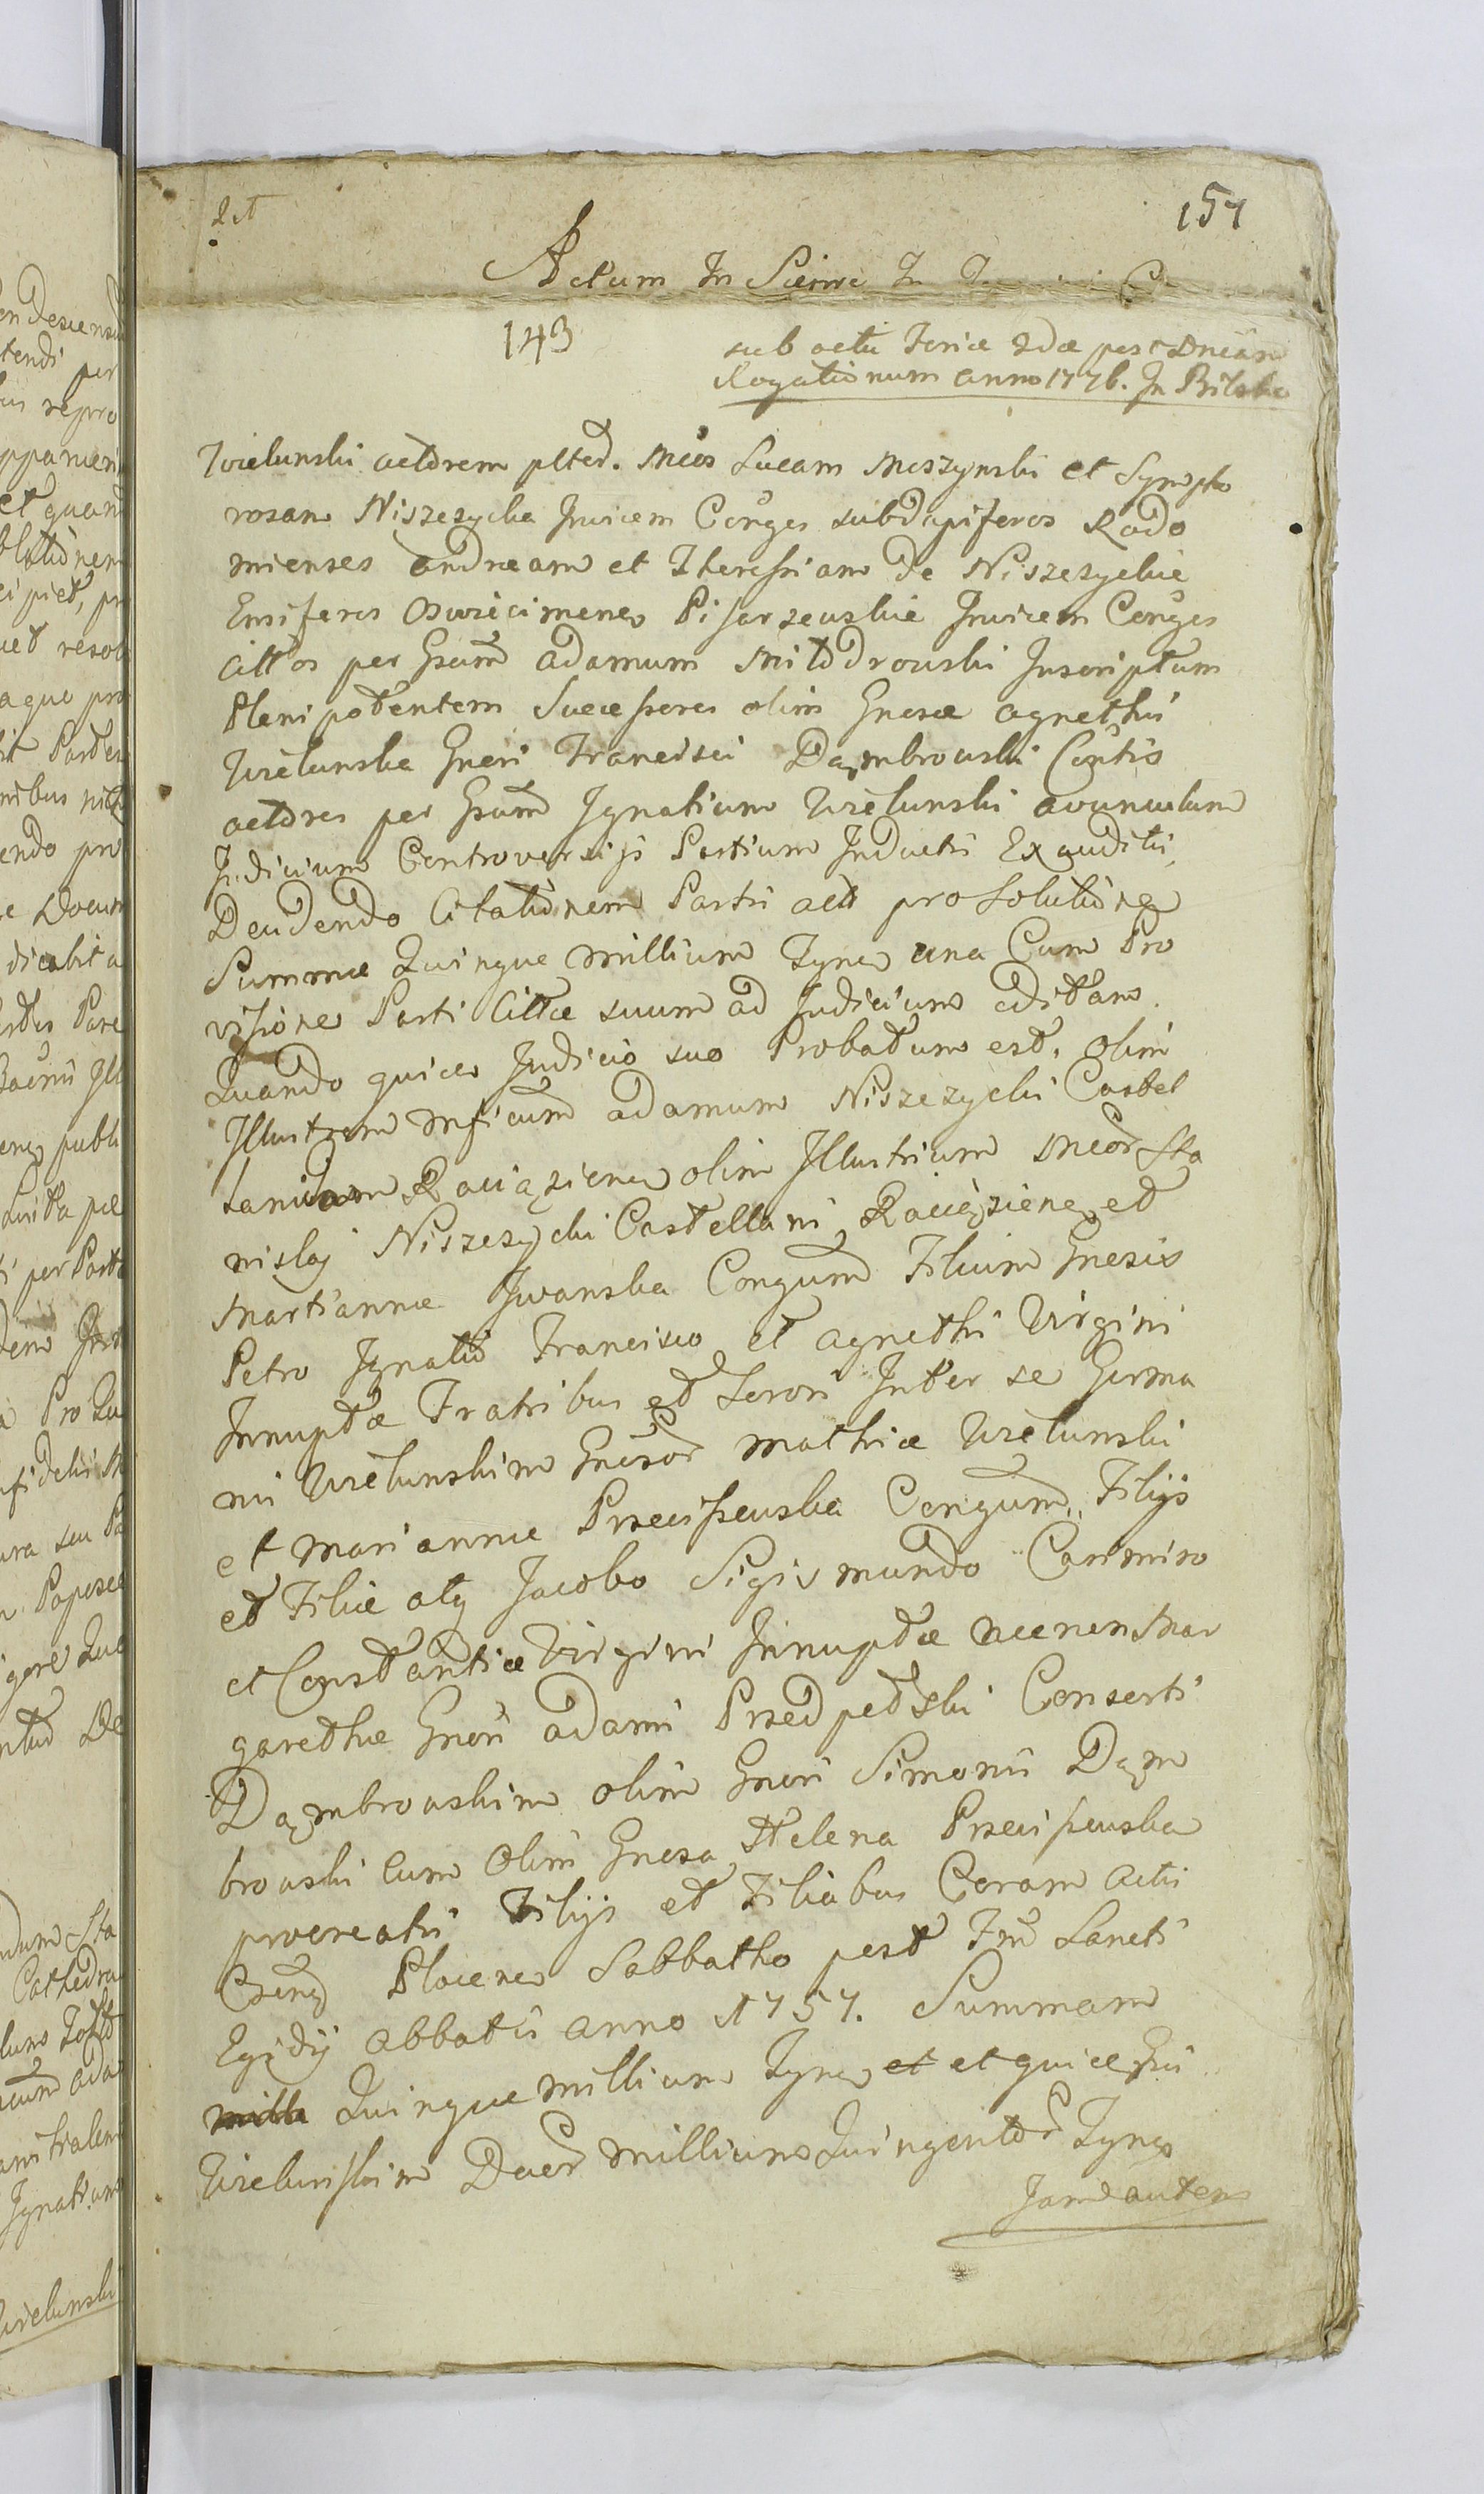 157
Actum In Sierpc In
143
sub actu Feriæ 2dæ post Dnicam
Rogationum anno 1776. In Bilsko
Wielunski actorem plted. Mcos Lucam Moszynski et Sympho
rosam Niszczycka Invicem Conges subdapiferos Rado
mienses andræam et Theressiam de Niszczyckie
Ensiferos Oswiecimenes Pisarzewskie Invicem Conges
Cittos per Gsum adamum Mitodrowski Inscriptum
Plenipotentem Successores olim Gnosæ agnethis
Wielunska Gnesi Francisci Dąmbrowski Contis
actores per Gsum Ignatium Wielunski avunculum
Judicium Controversijs Partium Inductis Exauditis
Deudendo Citationem Partis act pro solutione
Summæ Quinque Millium Tyner una Cum Pro
visione Parti Cittæ suum ad Judicium editam.
Quando quice Judicio suo Probatum est, olim
Illustrem Mficum adamum Niszczycki Castel
lanidam Raciąziene olim Illustrium Mcor Sta
nislaj Niszczycki Castellani Raciąziene et
Martiannæ Iwanska Congum Filium Gnesis
Petro Ignatio Francisco et agnethi Virgini
Innuptæ Fratribus et Sorori Inter se Germa
nis Wielunskim Gnesor Mathiæ Wielunski
et Mariannæ Przeciszewska Congum Filijs
et Filiæ atq Jacobo Sigismundo Casimiro
et Constantiæ Virgini Innuptæ necnon Mar
garethæ Gnesi adami Przedpelski Consorti
Dąmbrowskim olim Gnesi Simonis Dąm
browski cum Olim Gnesa Helena Przeciszewska
procreatis Filijs et Filiabus Coram Actis
Plocene Sabbatho post Ftm Sancti
Egidij Abbatis anno 1757. Summam
mille Quinque millium Tyner et et quice Gsis
Wielunskim Duor Millium Quingentor Tyner
Jam autem